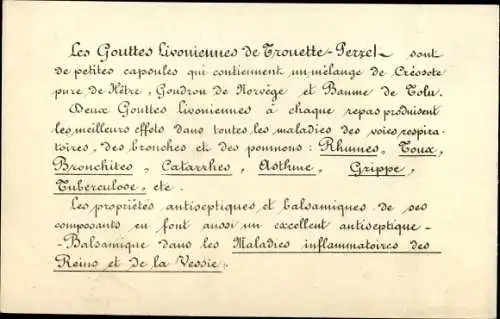 Les Gouttes Livoniennes de Trouette-Perret sont
de petites capsules qui contiennent un mélange de Créosote
pure de Hêtre, Goudron de Norvège et Baume de Tolu.
Deux Gouttes Livoniennes à chaque repas produisent
les meilleurs effets dans toutes les maladies des voies respira-
toires, des bronches et des poumons : Rhumes, Toux,
Bronchites, Catarrhes, Asthme, Grippe,
Tuberculose, etc.
Les propriétés antiseptiques et balsamiques de ses
composants en font aussi un excellent antiseptique-
-Balsamique dans les Maladies inflammatoires des
Reins et de la Vessie.